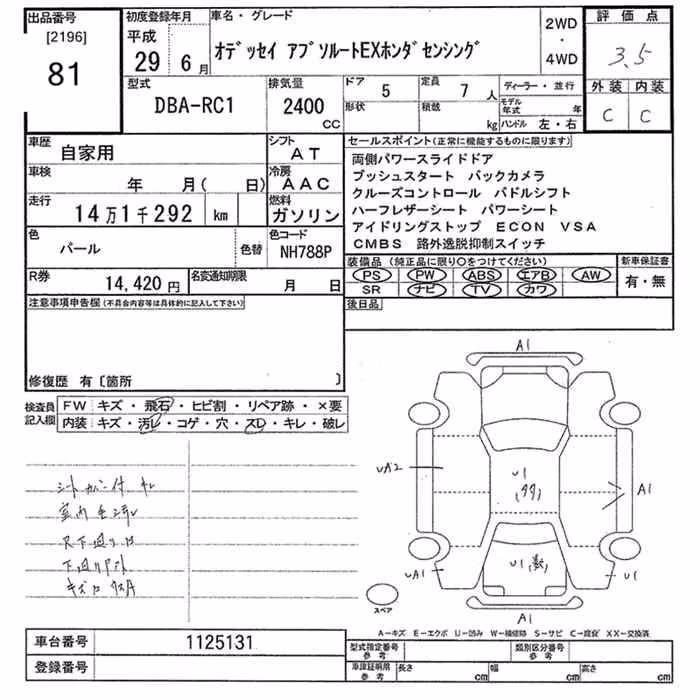 出品番号
[2196]
81
初度登録年月
平成
29 6月
車名・グレード
オデッセイ アブソルートEXホンダセンシング
2WD
・
4WD
評価点
3.5
外装 内装
C C
型式
DBA-RC1
排気量
2400
CC
ドア 5
形状
定員 7 人
積載 kg
ディーラー・並行
モデル年式 年
ハンドル 左・右
車歴
自家用
シフト
AT
車検
年 月( 日)
冷房
AAC
走行
14万1千292 km
燃料
ガソリン
色
パール
色替
色コード
NH788P
R券
14,420円
名変通知期限
月 日
セールスポイント(正常に機能するものに限ります)
両側パワースライドドア
プッシュスタート バックカメラ
クルーズコントロール パドルシフト
ハーフレザーシート パワーシート
アイドリングストップ ECON VSA
CMBS 路外逸脱抑制スイッチ
装備品(純正品に限り○をつけてください)
PS PW ABS エアB AW
SR ナビ TV カワ
新車保証書
有・無
後日品
注意事項申告欄(不具合内容等は具体的に記入して下さい)
修復歴 有〔箇所 〕
検査員
記入欄
FW キズ・飛石・ヒビ割・リペア跡・×要
内装 キズ・汚レ・コゲ・穴・スレ・キレ・破レ
シートカバー付 キレ
下廻リ
A1
UA2
U1
A1
U1
UA1
U1
A1
スペア
A-キズ E-エクボ U-凹み W-補修跡 S-サビ C-腐食 XX-交換済
車台番号 1125131
登録番号
型式指定番号
参考
類別区分番号
参考
車庫証明用
参考
長さ cm 幅 cm 高さ cm